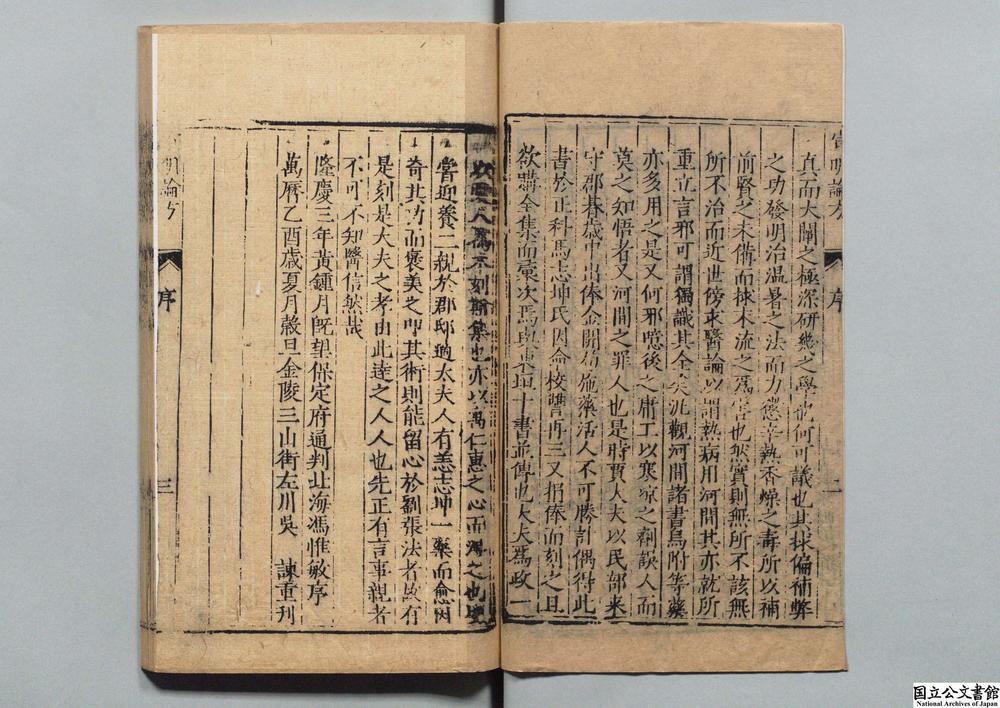 宣明論方
序
二
真而大闡之極深研幾之學也何可議也其捄偏補弊
之功發明治温暑之法而力懲辛熱香燥之毒所以補
前賢之未備而捄末流之為害也然實則無所不該無
所不治而近世傍求醫論以謂熱病用河間其亦就所
重立言邪可謂獨識其全矣泚觀河間諸書烏附等藥
亦多用之是又何邪噫後之庸工以寒凉之劑誤人而
莫之知悟者又河間之罪人也是時賈大夫以民部来
守郡暮歲中出俸金開局施藥活人不可勝計偶得此
書於正科馬志坤氏因命校讐再三又捐俸而刻之且
欲購全集而彙次焉與東垣十書並傳也大夫為政一
以愛人為本刻斯集也亦以寓仁惠之心而
嘗迎養二親於郡邸適太夫人有恙志坤一藥而愈因
奇其功而褒美之叩其術則能留心於劉張法者故有
是刻是大夫之孝由此達之人人也先正有言事親者
不可不知醫信然哉
隆慶三年黃鍾月旣望保定府通判北海馮惟敏序
萬曆乙酉歲夏月穀旦金陵三山街左川吳 諫重刊
明論方
序
三
国立公文書館
National Archives of Japan